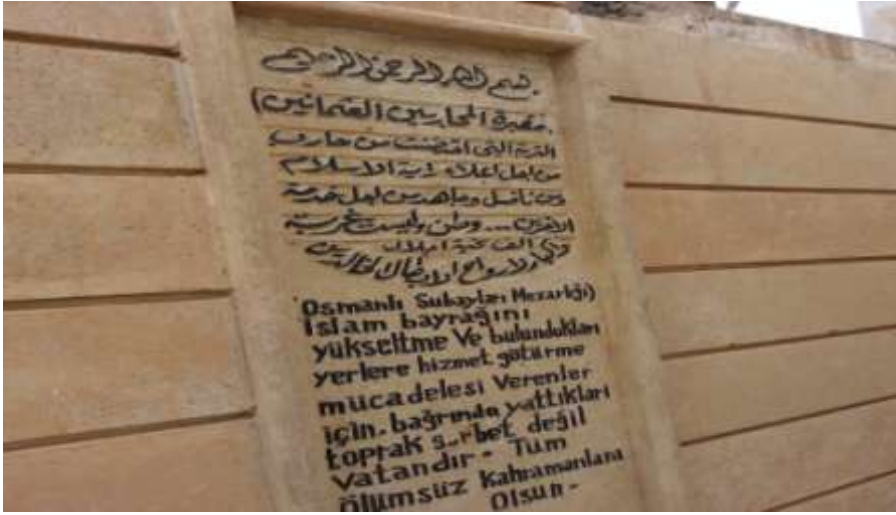 بسم الله الرحمن الرحيم
مقبرة المحاربين العثمانيين)
التربة التي احتضنت من حارب
من اجل اعلاء راية الاسلام
ومن ناضل وجاهد من اجل خدمة
الاخرين ... وطن وليست غربة
الف تحية اجلال
لارواح الابطال الخالدين
Osmanlı Subayları Mezarlığı)
İslam bayrağını
yükseltme Ve bulundukları
yerlere hizmet götürme
mücadelesi Verenler
için. bağrında yattıkları
toprak gurbet değil
Vatandır - Tüm
Ölümsüz Kahramanlara
Olsun -